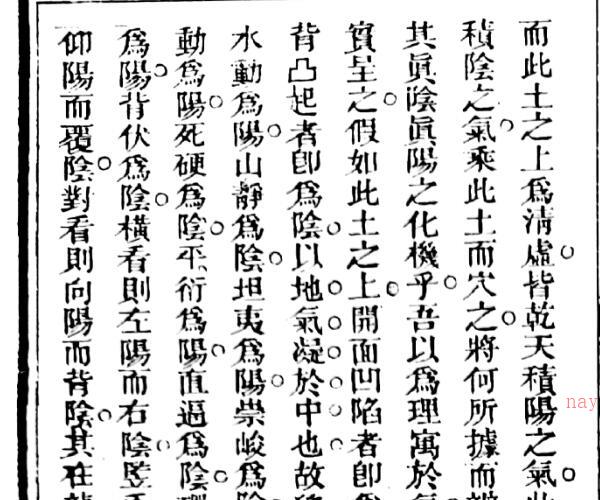 而此土之上爲清虛皆乾天積陽之氣
積陰之氣乘此土而穴之將何所據而
其眞陰眞陽之化機乎吾以爲理寓於
實呈之假如此土之上開面凹陷者卽
背凸起者卽爲陰以地氣凝於中也故
水動爲陽山靜爲陰坦夷爲陽崇峻爲陰
動爲陽死硬爲陰平衍爲陽直逼爲陰
爲陽背伏爲陰橫看則左陽而右陰豎
仰陽而覆陰對看則向陽而背陰其在
nay